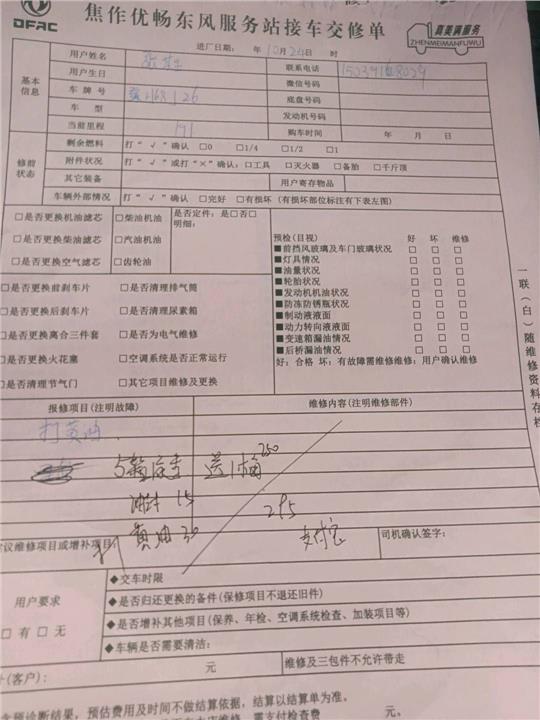 DFAC
焦作优畅东风服务站接车交修单
真美满服务
ZHENMEIMANFUWU
进厂日期： 年10月24日 时
基本信息
用户姓名
联系电话
用户生日
微信号码
车牌号
底盘号码
车型
发动机号码
当前里程 191
购车时间 年 月 日
修前状态
剩余燃料 打“√”确认 □0 □1/4 □1/2 □1
附件状况 打“√”或打“×”确认：□工具 □灭火器 □备胎 □千斤顶
其它装备
用户寄存物品
车辆外部情况 打“√”确认 □完好 □有损坏（有损坏部位标注有下表左图）
□是否更换机油滤芯 □柴油机油 是否定件：是□否□
明细：
□是否更换柴油滤芯 □汽油机油
□是否更换空气滤芯 □齿轮油
预检(目视) 好 坏 维修
■前挡风玻璃及车门玻璃状况 □ □ □
■灯具情况 □ □ □
■油量状况 □ □ □
■轮胎状况 □ □ □
■发动机机油状况 □ □ □
■防冻防锈瓶状况 □ □ □
■制动液液面 □ □ □
■动力转向液液面 □ □ □
■变速箱漏油情况 □ □ □
■后桥漏油情况 □ □ □
好：合格 坏：有故障需维修维修：用户确认维修
□是否更换前刹车片 □是否清理排气筒
□是否更换后刹车片 □是否清理尿素箱
□是否更换离合三件套 □是否为电气维修
□是否更换火花塞 □空调系统是否正常运行
□是否清理节气门 □其它项目维修及更换
一联（白）随维修资料存档
报修项目(注明故障)
维修内容(注明维修部件)
打黄油
送1桶 250
15
打黄油30
295
支付宝
议维修项目或增补项目：
司机确认签字：
用户要求
□有□无
◆交车时限
◆是否归还更换的备件(保修项目不退还旧件)
◆是否增补其他项目(保养、年检、空调系统检查、加装项目等)
◆车辆是否需要清洁：
(客户)：
元
维修及三包件不允许带走
含预诊断结果，预估费用及时间不做结算依据，结算以结算单为准。
需支付检查费 元。